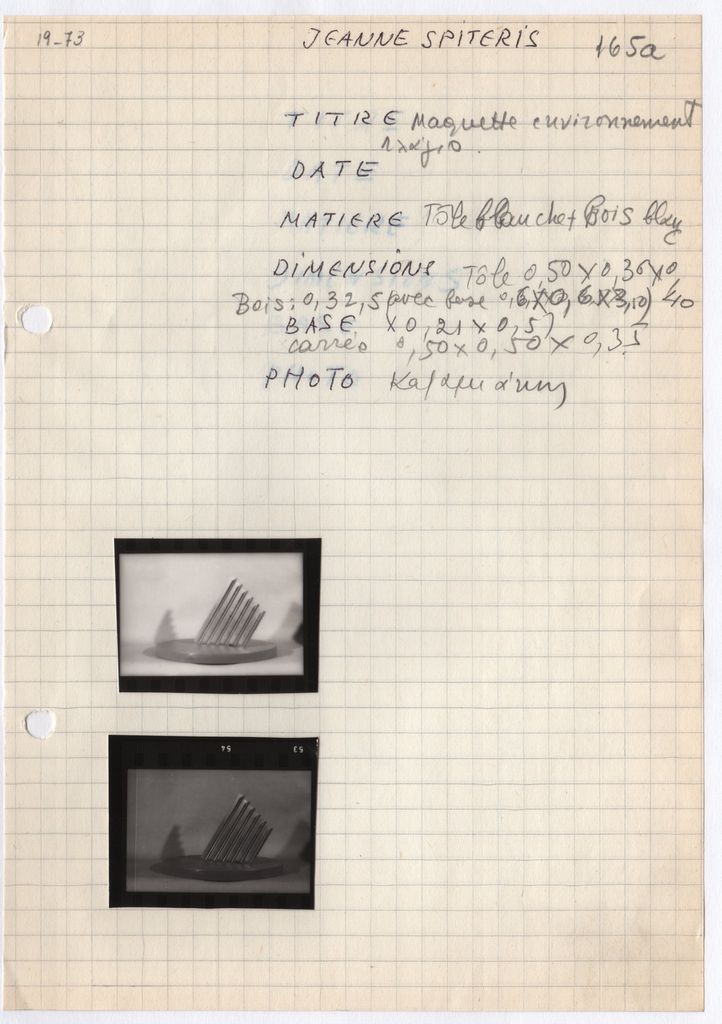 19-73
JEANNE SPITERIS
165a
TITRE Maquette environnement
πλάγιο.
DATE
MATIERE Tôle blanche + Bois blanc
DIMENSIONS Tôle 0,50 x 0,36 x 0,40
Bois: 0,32,5 (avec base
BASE x 0,21 x 0,5)
carrée 0,50 x 0,50 x 0,35
PHOTO
54 53